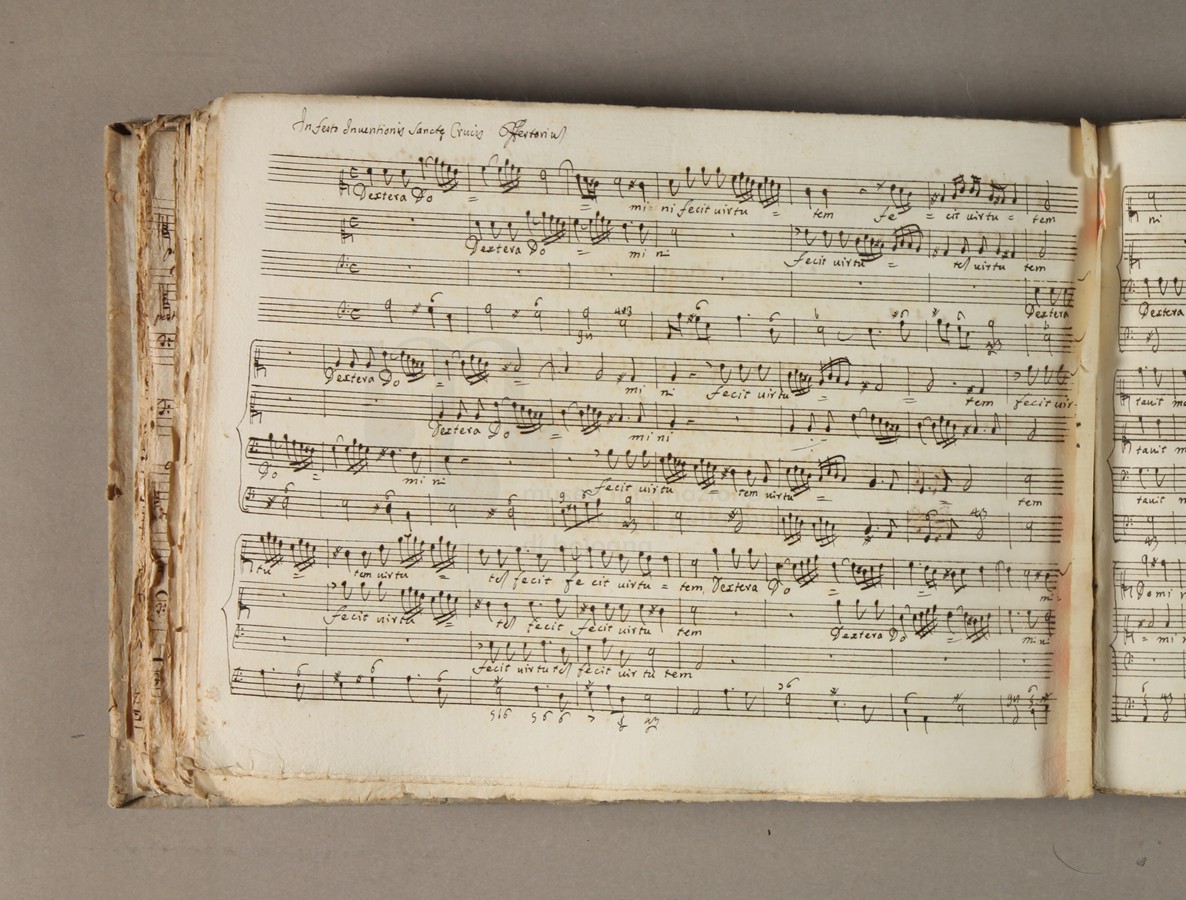 In festo Inventionis Sanctę Crucis Offertoriu
Dextera Do = = mi ni fecit uirtu = tem fe = cit uirtu = tem
Dextera Do = mi ni fecit uirtu = uirtu tem
Dextera
Dextera Do = = mi ni fecit uirtu = tem fecit uir
Dextera Do = mi ni
Do mi ni fecit uirtu tem uirtu = tem
tu = tem uirtu = fecit fe cit uirtu = tem Dextera Do = = mi
fecit uirtu = fecit fecit uirtu tem Dextera Do = mi ni
fecit uirtu fecit uir tu tem
ni
Dextera
tauit
tauit
tauit
Domi
= mi